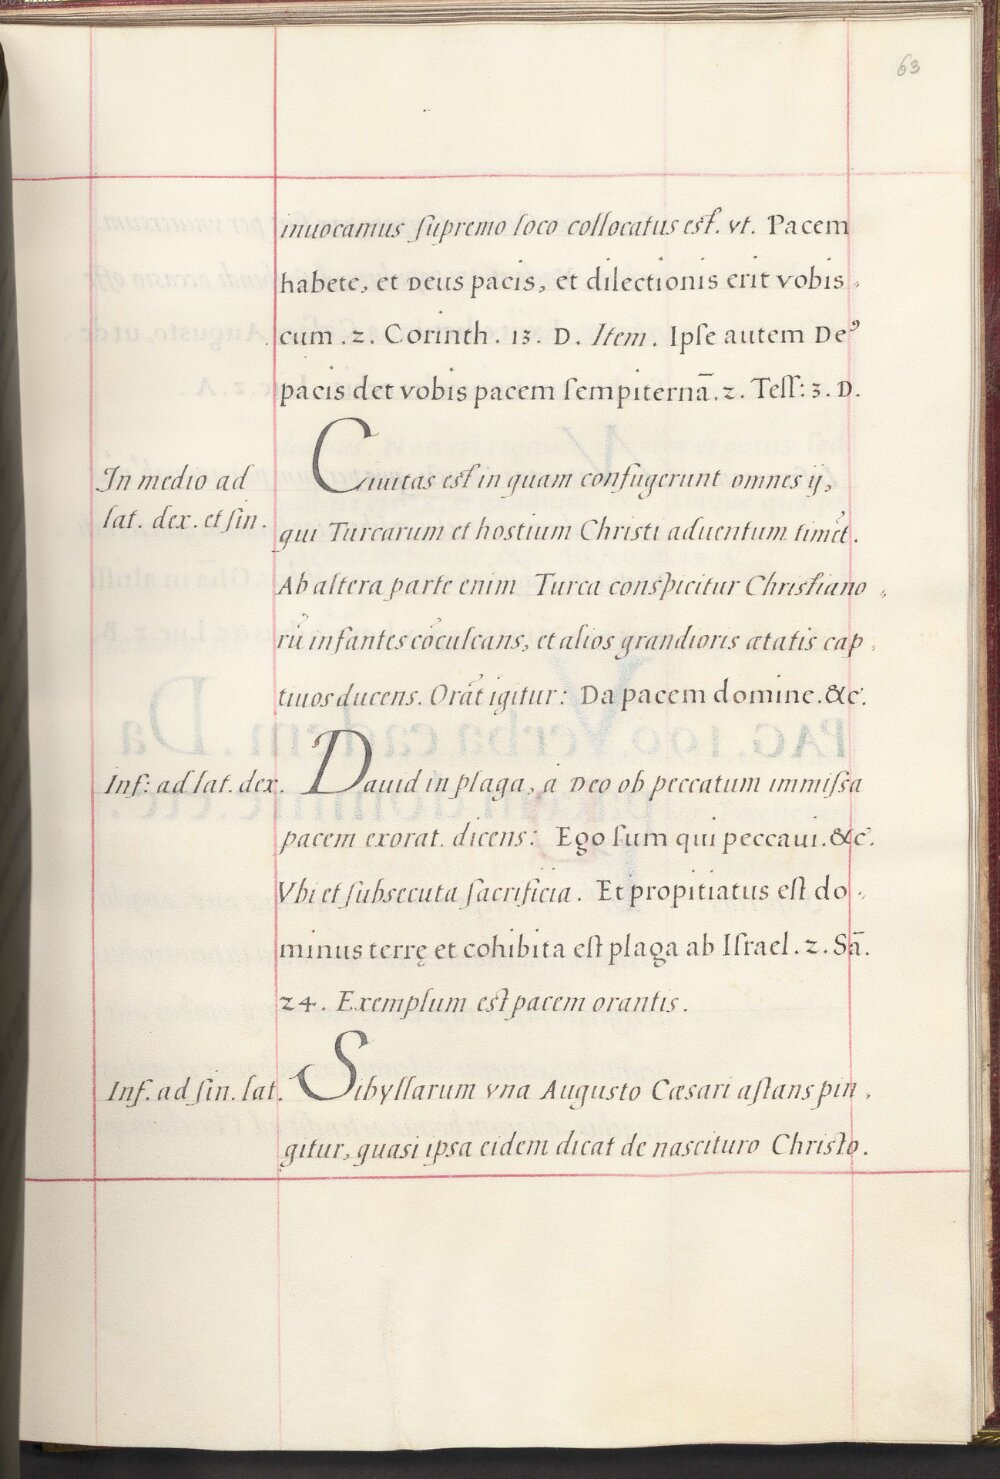 63
inuocamus ſupremo loco collocatus est. vt. Pacem
habete, et Deus pacis, et dilectionis erit vobis
cum. 2. Corinth. 13. D. Item. Ipſe autem De⁹
pacis det vobis pacem ſempiternā. 2. Teſſ: 3. D.
In medio ad
lat. dex. et ſin.
Ciuitas est in quam confugerunt omnes ij,
qui Turcarum et hostium Christi aduentum timēt.
Ab altera parte enim Turca conspicitur Christiano
rū infantes cōculcans, et alios grandioris ætatis cap
tiuos ducens. Orāt igitur: Da pacem domine. &c.
Inf: ad lat. dex.
Dauid in plaga, a Deo ob peccatum immiſſa
pacem exorat. dicens: Ego ſum qui peccaui. &c.
Vbi et ſubsecuta ſacrificia. Et propitiatus eſt do
minus terrę et cohibita eſt plaga ab Iſrael. 2. Sā.
24. Exemplum est pacem orantis.
Inf. ad ſin. lat.
Sibyllarum vna Augusto Cæsari aſtans pin
gitur, quasi ipsa eidem dicat de nascituro Christo.